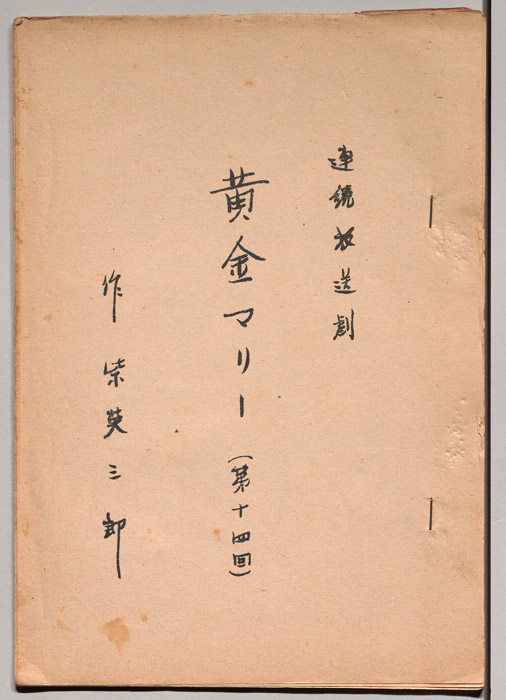 連続放送劇
黄金マリー（第十四回）
作 柴英三郎